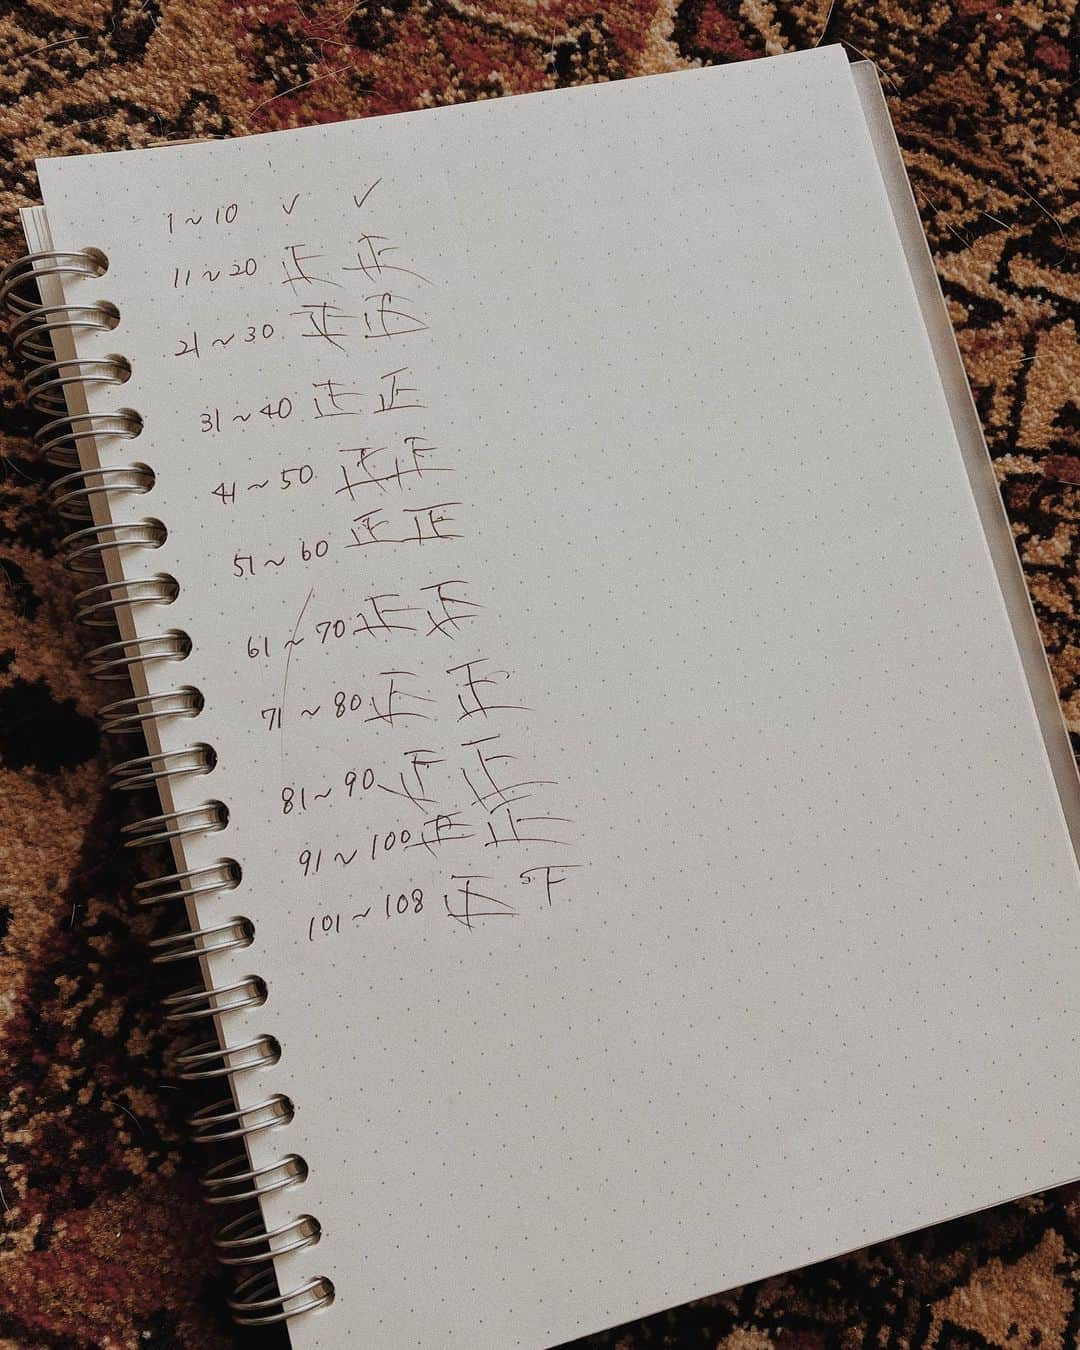 1～10 ✓ ✓
11～20 正 正
21～30 正 正
31～40 正 正
41～50 正 正
51～60 正 正
61～70 正 正
71～80 正 正
81～90 正 正
91～100 正 正
101～108 正